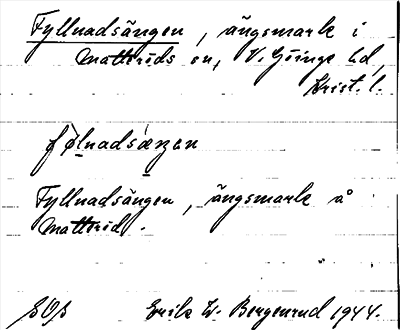 Fyllnadsängen, ängsmark i
Matteröds sn, V. Göinge hd,
Krist. l.
Fyllnadsängen, ängsmark å
Matteröd.
Erik W. Bergenrud 1944.